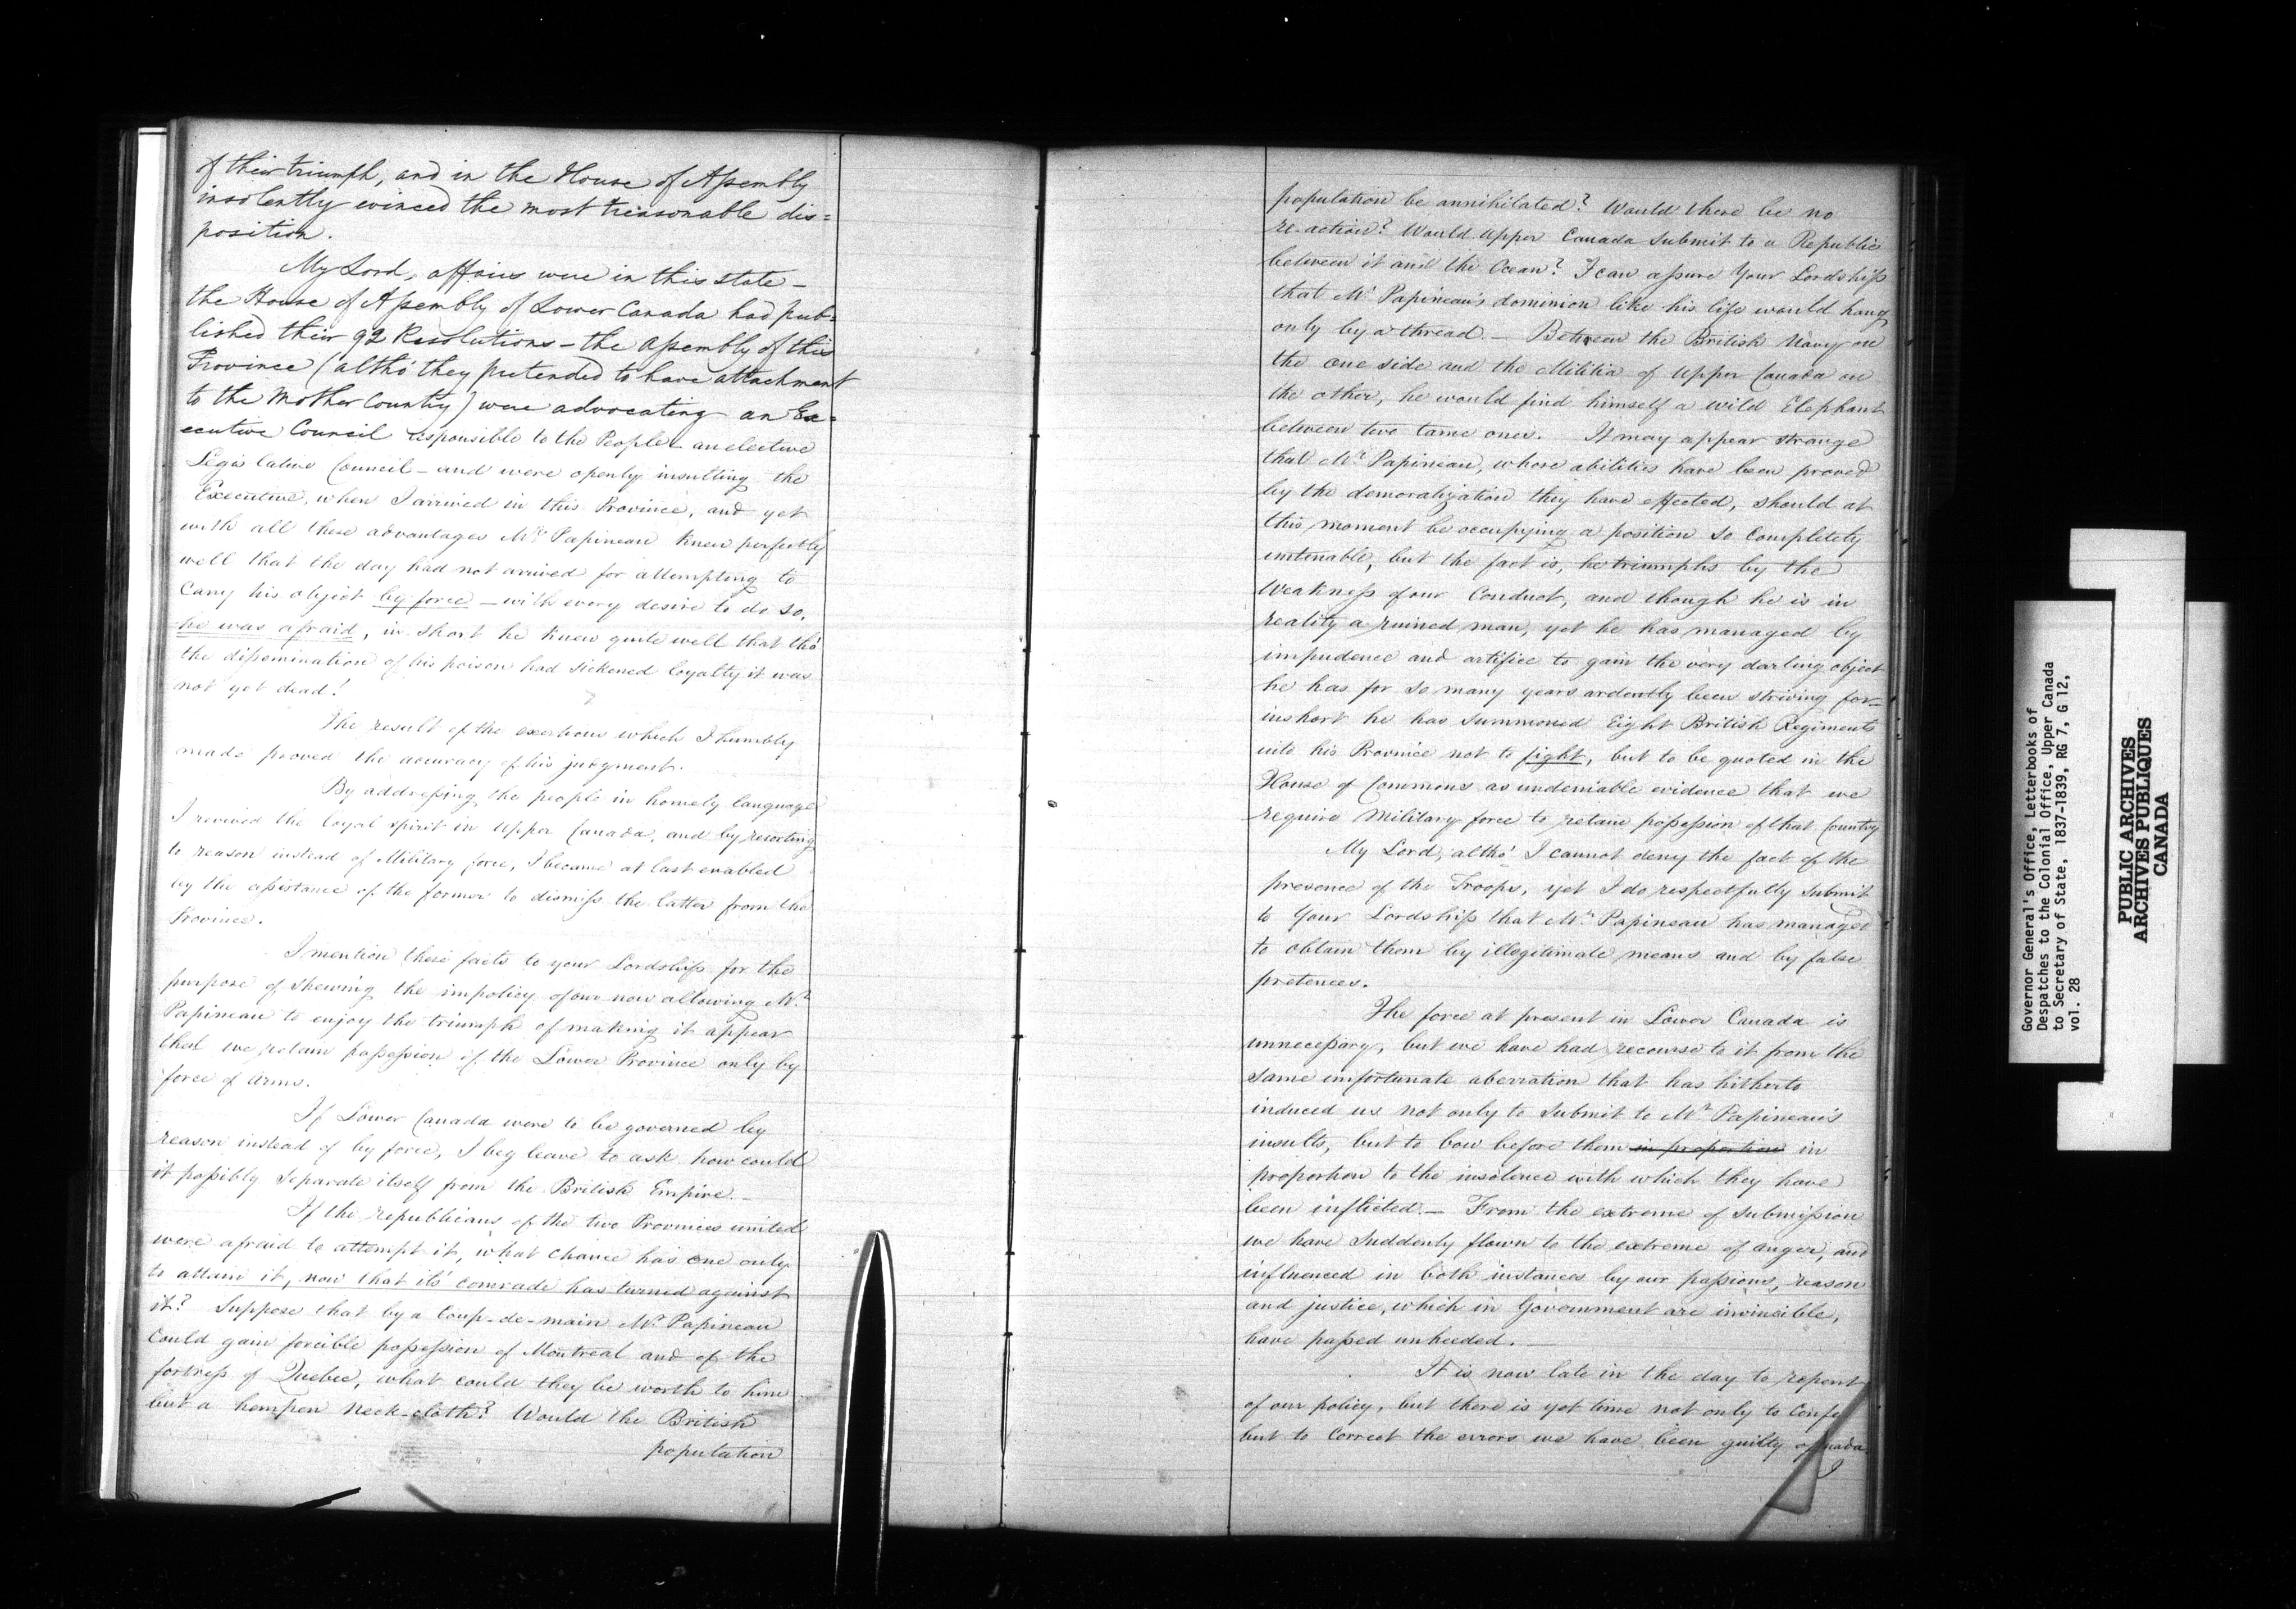 of their triumph, and in the House of Assembly
insolently evinced the most treasonable dis=
position.
My Lord, affairs were in this state –
the House of Assembly of Lower Canada had pub=
lished their 92 Resolutions – the Assembly of this
Province (altho' they pretended to have attachment
to the Mother Country) were advocating an Ex=
ecutive Council responsible to the People – an elective
Legislative Council – and were openly insulting the
Executive, when I arrived in this Province, and yet
with all these advantages Mr. Papineau knew perfectly
well that the day had not arrived for attempting to
Carry his object by force – with every desire to do so,
he was afraid, in short he knew quite well that tho'
the dissemination of his poison had sickened loyalty it was
not yet dead!
The result of the exertions which I humbly
made proved the accuracy of his judgment.
By addressing the people in homely language
I revived the loyal spirit in Upper Canada, and by resorting
to reason instead of Military force, I became at last enabled
by the assistance of the former to dismiss the latter from the
Province.
I mention these facts to your Lordship for the
purpose of shewing the impolicy of our now allowing Mr.
Papineau to enjoy the triumph of making it appear
that we retain possession of the Lower Province only by
force of arms.
If Lower Canada were to be governed by
reason instead of by force, I beg leave to ask how could
it possibly separate itself from the British Empire. –
If the republicans of the two Provinces united
were afraid to attempt it, what chance has one only
to attain it, now that its' comrade has turned against
it? Suppose that by a Coup-de-main Mr. Papineau
Could gain forcible possession of Montreal and of the
fortress of Quebec, what could they be worth to him
but a hempen Neck-cloth? Would the British
population
population be annihilated? Would there be no
re-action? Would Upper Canada submit to a Republic
between it and the Ocean? I can assure Your Lordship
that Mr. Papineau's dominion like his life would hang
only by a thread. – Between the British Navy on
the one side and the Militia of Upper Canada on
the other, he would find himself a wild Elephant
between two tame ones. It may appear strange
that Mr. Papineau, whose abilities have been proved
by the demoralization they have effected, should at
this moment be occupying a position so completely
untenable, but the fact is, he triumphs by the
Weakness of our Conduct, and though he is in
reality a ruined man, yet he has managed by
impudence and artifice to gain the very darling object
he has for so many years ardently been striving for –
in short he has summoned Eight British Regiments
into his Province not to fight, but to be quoted in the
House of Commons as undeniable evidence that we
require Military force to retain possession of that Country
My Lord, altho' I cannot deny the fact of the
presence of the Troops, yet I do respectfully submit
to Your Lordship that Mr. Papineau has managed
to obtain them by illegitimate means and by false
pretences.
The force at present in Lower Canada is
unnecessary, but we have had recourse to it from the
same unfortunate aberration that has hitherto
induced us not only to submit to Mr. Papineau's
insults, but to bow before them in proportion in
proportion to the insolence with which they have
been inflicted. – From the extreme of submission
we have suddenly flown to the extreme of anger, and
influenced in both instances by our passions, reason
and justice, which in Government are invincible,
have passed unheeded. –
It is now late in the day to repent
of our policy, but there is yet time not only to Confe
but to Correct the errors we have been guilty of
I
Governor General's Office, Letterbooks of
Despatches to the Colonial Office, Upper Canada
to Secretary of State, 1837-1839, RG 7, G 12,
vol. 28
PUBLIC ARCHIVES
ARCHIVES PUBLIQUES
CANADA